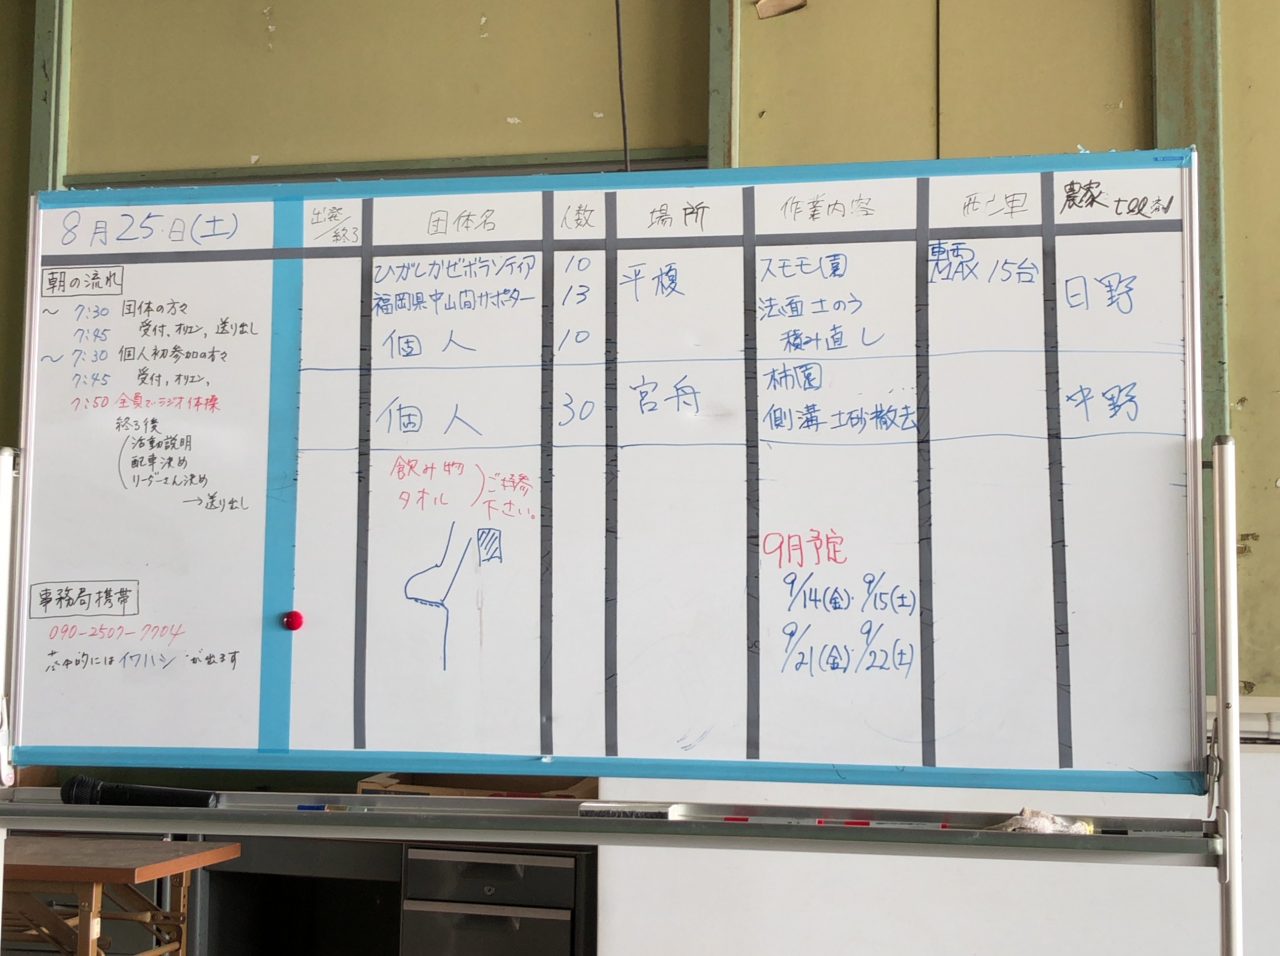 8月25日(土)
出発/終了
団体名
人数
場所
作業内容
配車
農家
朝の流れ
〜7:30 団体の方々
7:45 受付,オリエン,送り出し
〜7:30 個人初参加の方々
7:45 受付,オリエン,
7:50 全員でラジオ体操
終了後
活動説明
配車決め
リーダーさん決め
→送り出し
事務局携帯
090-2507-7704
基本的にはイワハシが出ます
ひがしかぜボランティア 10
福岡県中山間サポーター 13
個人 10
平榎
スモモ園
法面土のう
積み直し
車両
MAX 15台
日野
個人 30
宮舟
柿園
側溝土砂撤去
中野
飲み物
タオル
ご持参
下さい。
9月予定
9/14(金)・9/15(土)
9/21(金)・9/22(土)